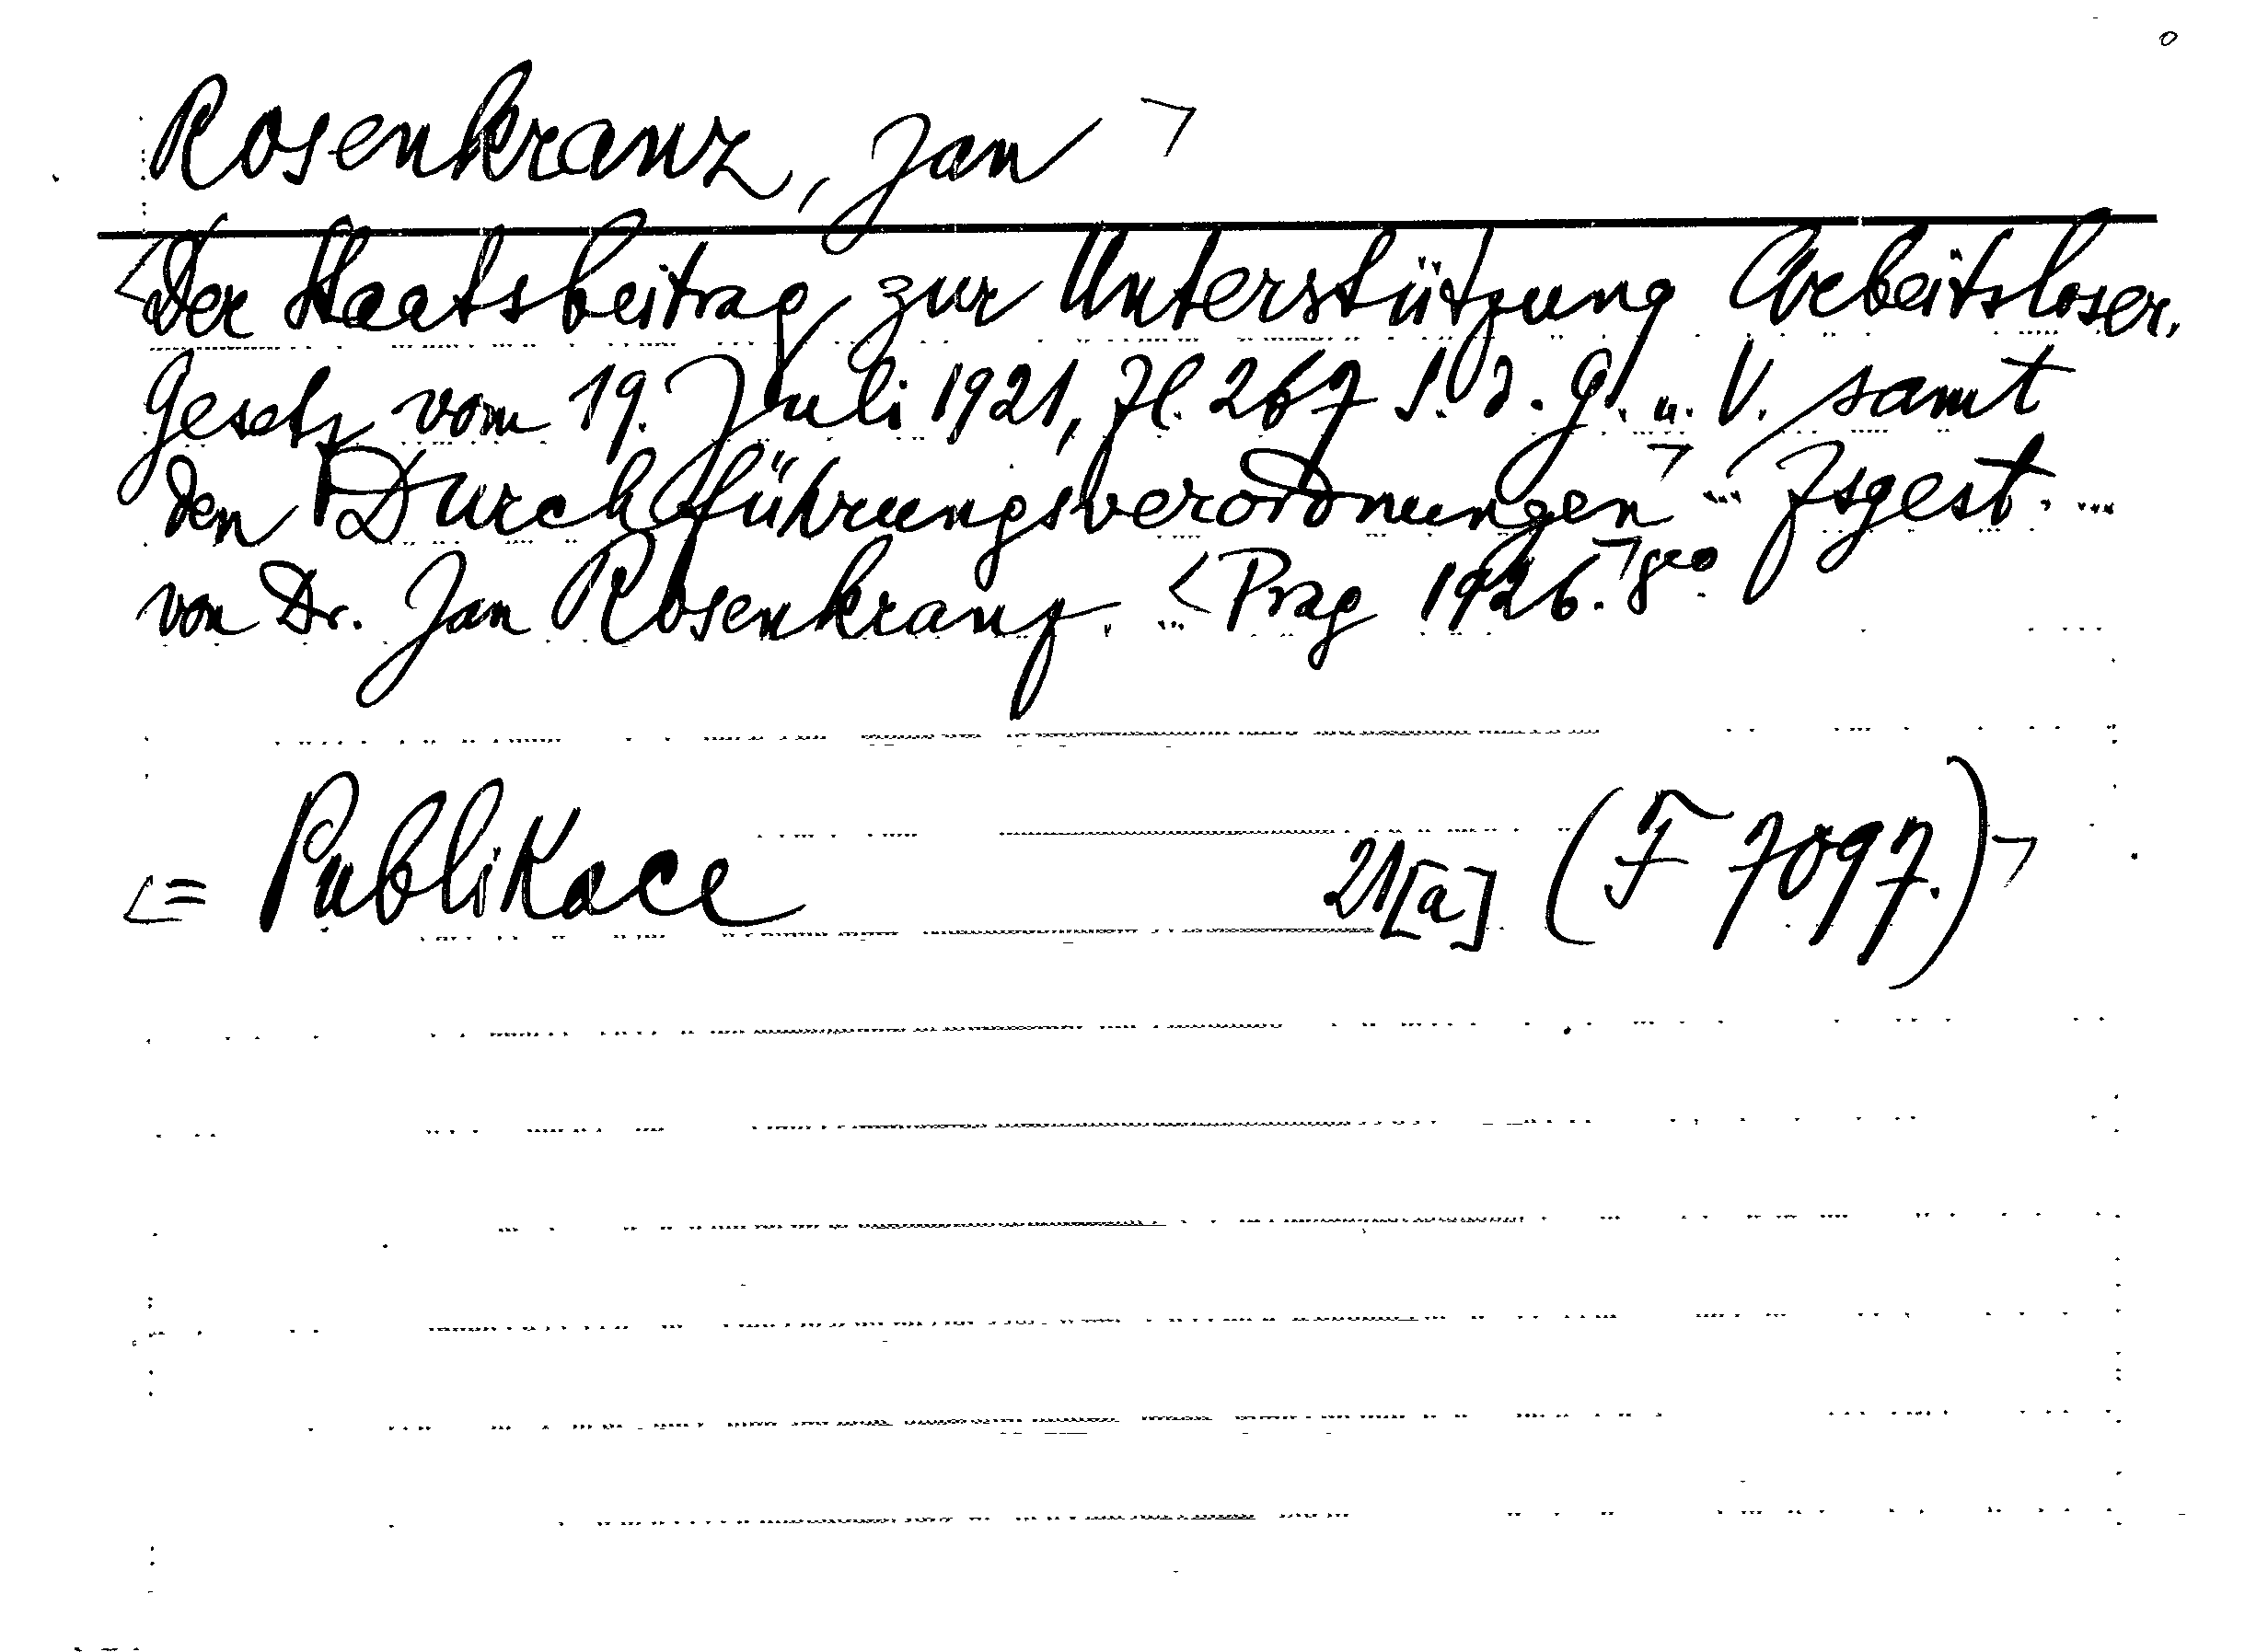 Rosenkranz, Jan
Der Staatsbeitrag zur Unterstützung Arbeitsloser.
Gesetz vom 19. Juli 1921, Zl. 267 S. d. G. u. V. samt
den Durchführungsverordnungen ... Zsgest. ...
von Dr. Jan Rosenkranz. ... Prag 1926. 8°.
= Publikace 21[a] (F 7097.)